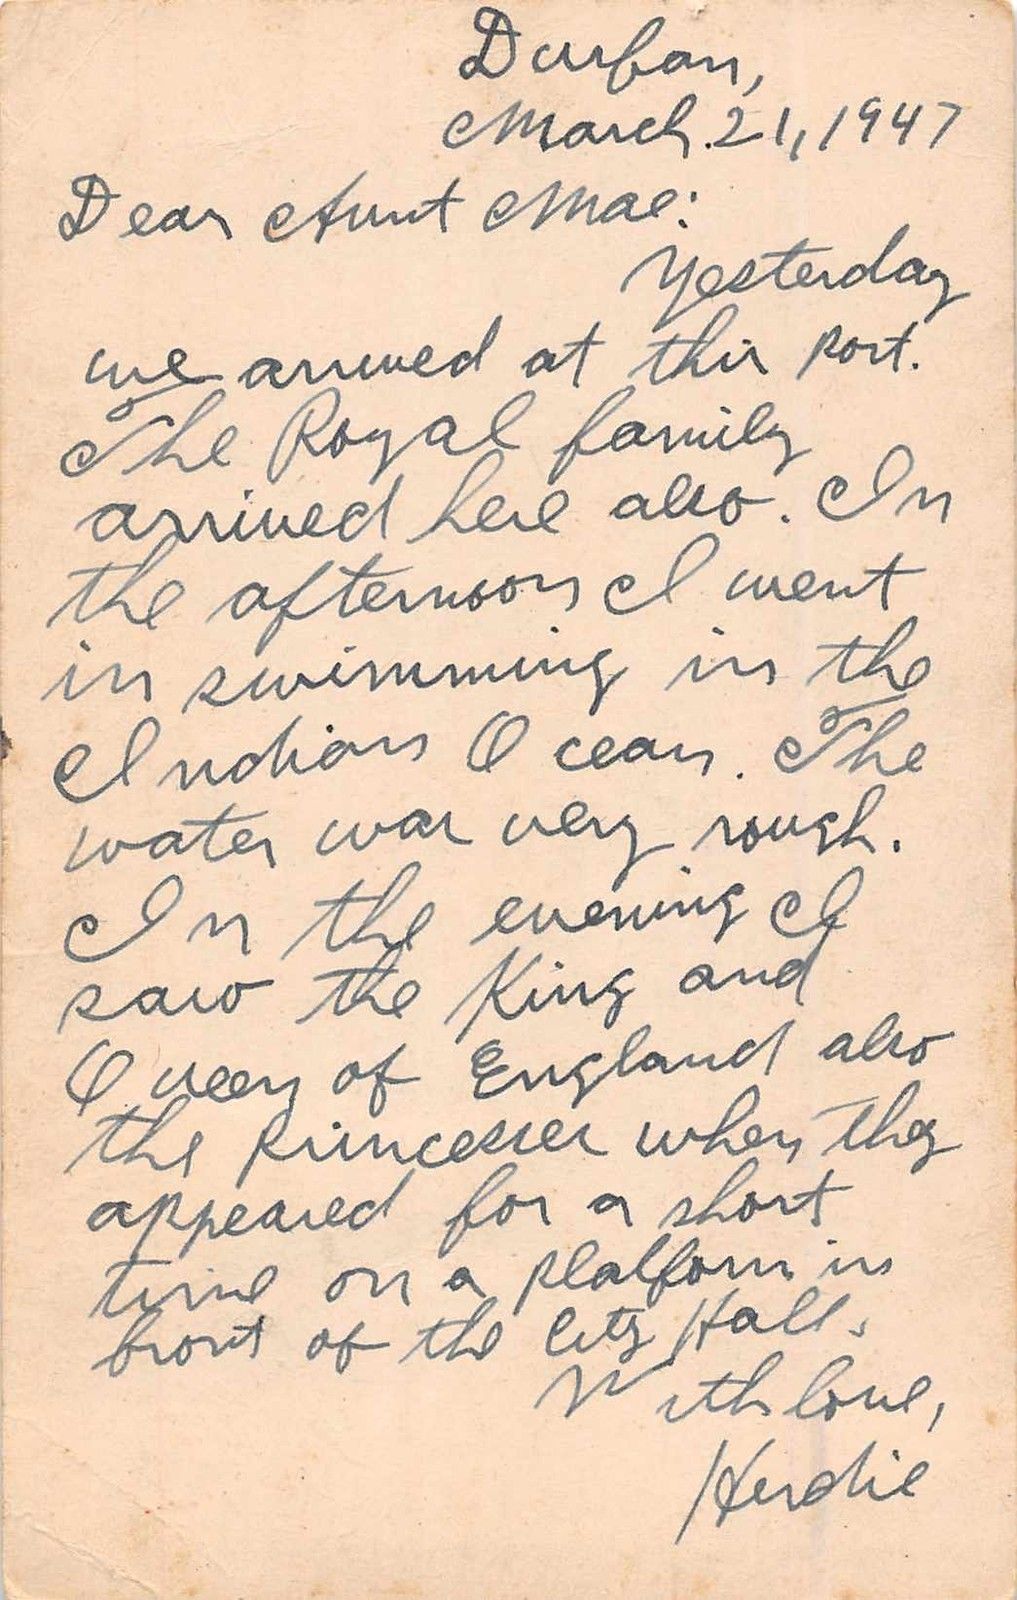 Durban,
March 21, 1947
Dear Aunt Mae:
Yesterday
we arrived at this port.
The Royal family
arrived here also. In
the afternoon I went
in swimming in the
Indian Ocean. The
water was very rough.
In the evening I
saw the King and
Queen of England also
the princesses when they
appeared for a short
time on a platform in
front of the City Hall.
With love,
Herdie